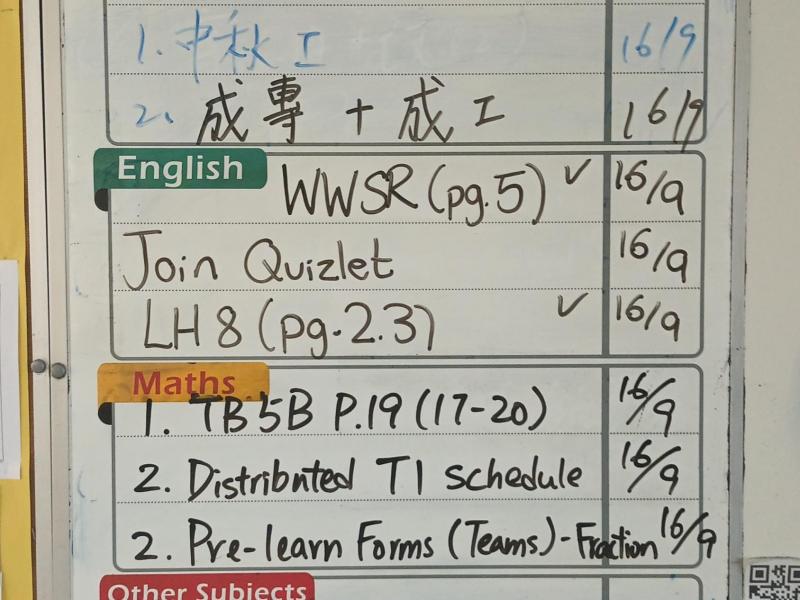 1. 中秋工 16/9
2. 成專 + 成工 16/9
English
WWSR (pg.5) ✓ 16/9
Join Quizlet 16/9
LH 8 (pg.2.3) ✓ 16/9
Maths
1. TB 5B P.19 (17-20) 16/9
2. Distributed T1 schedule 16/9
2. Pre-learn Forms (Teams) - Fraction 16/9
Other Subjects